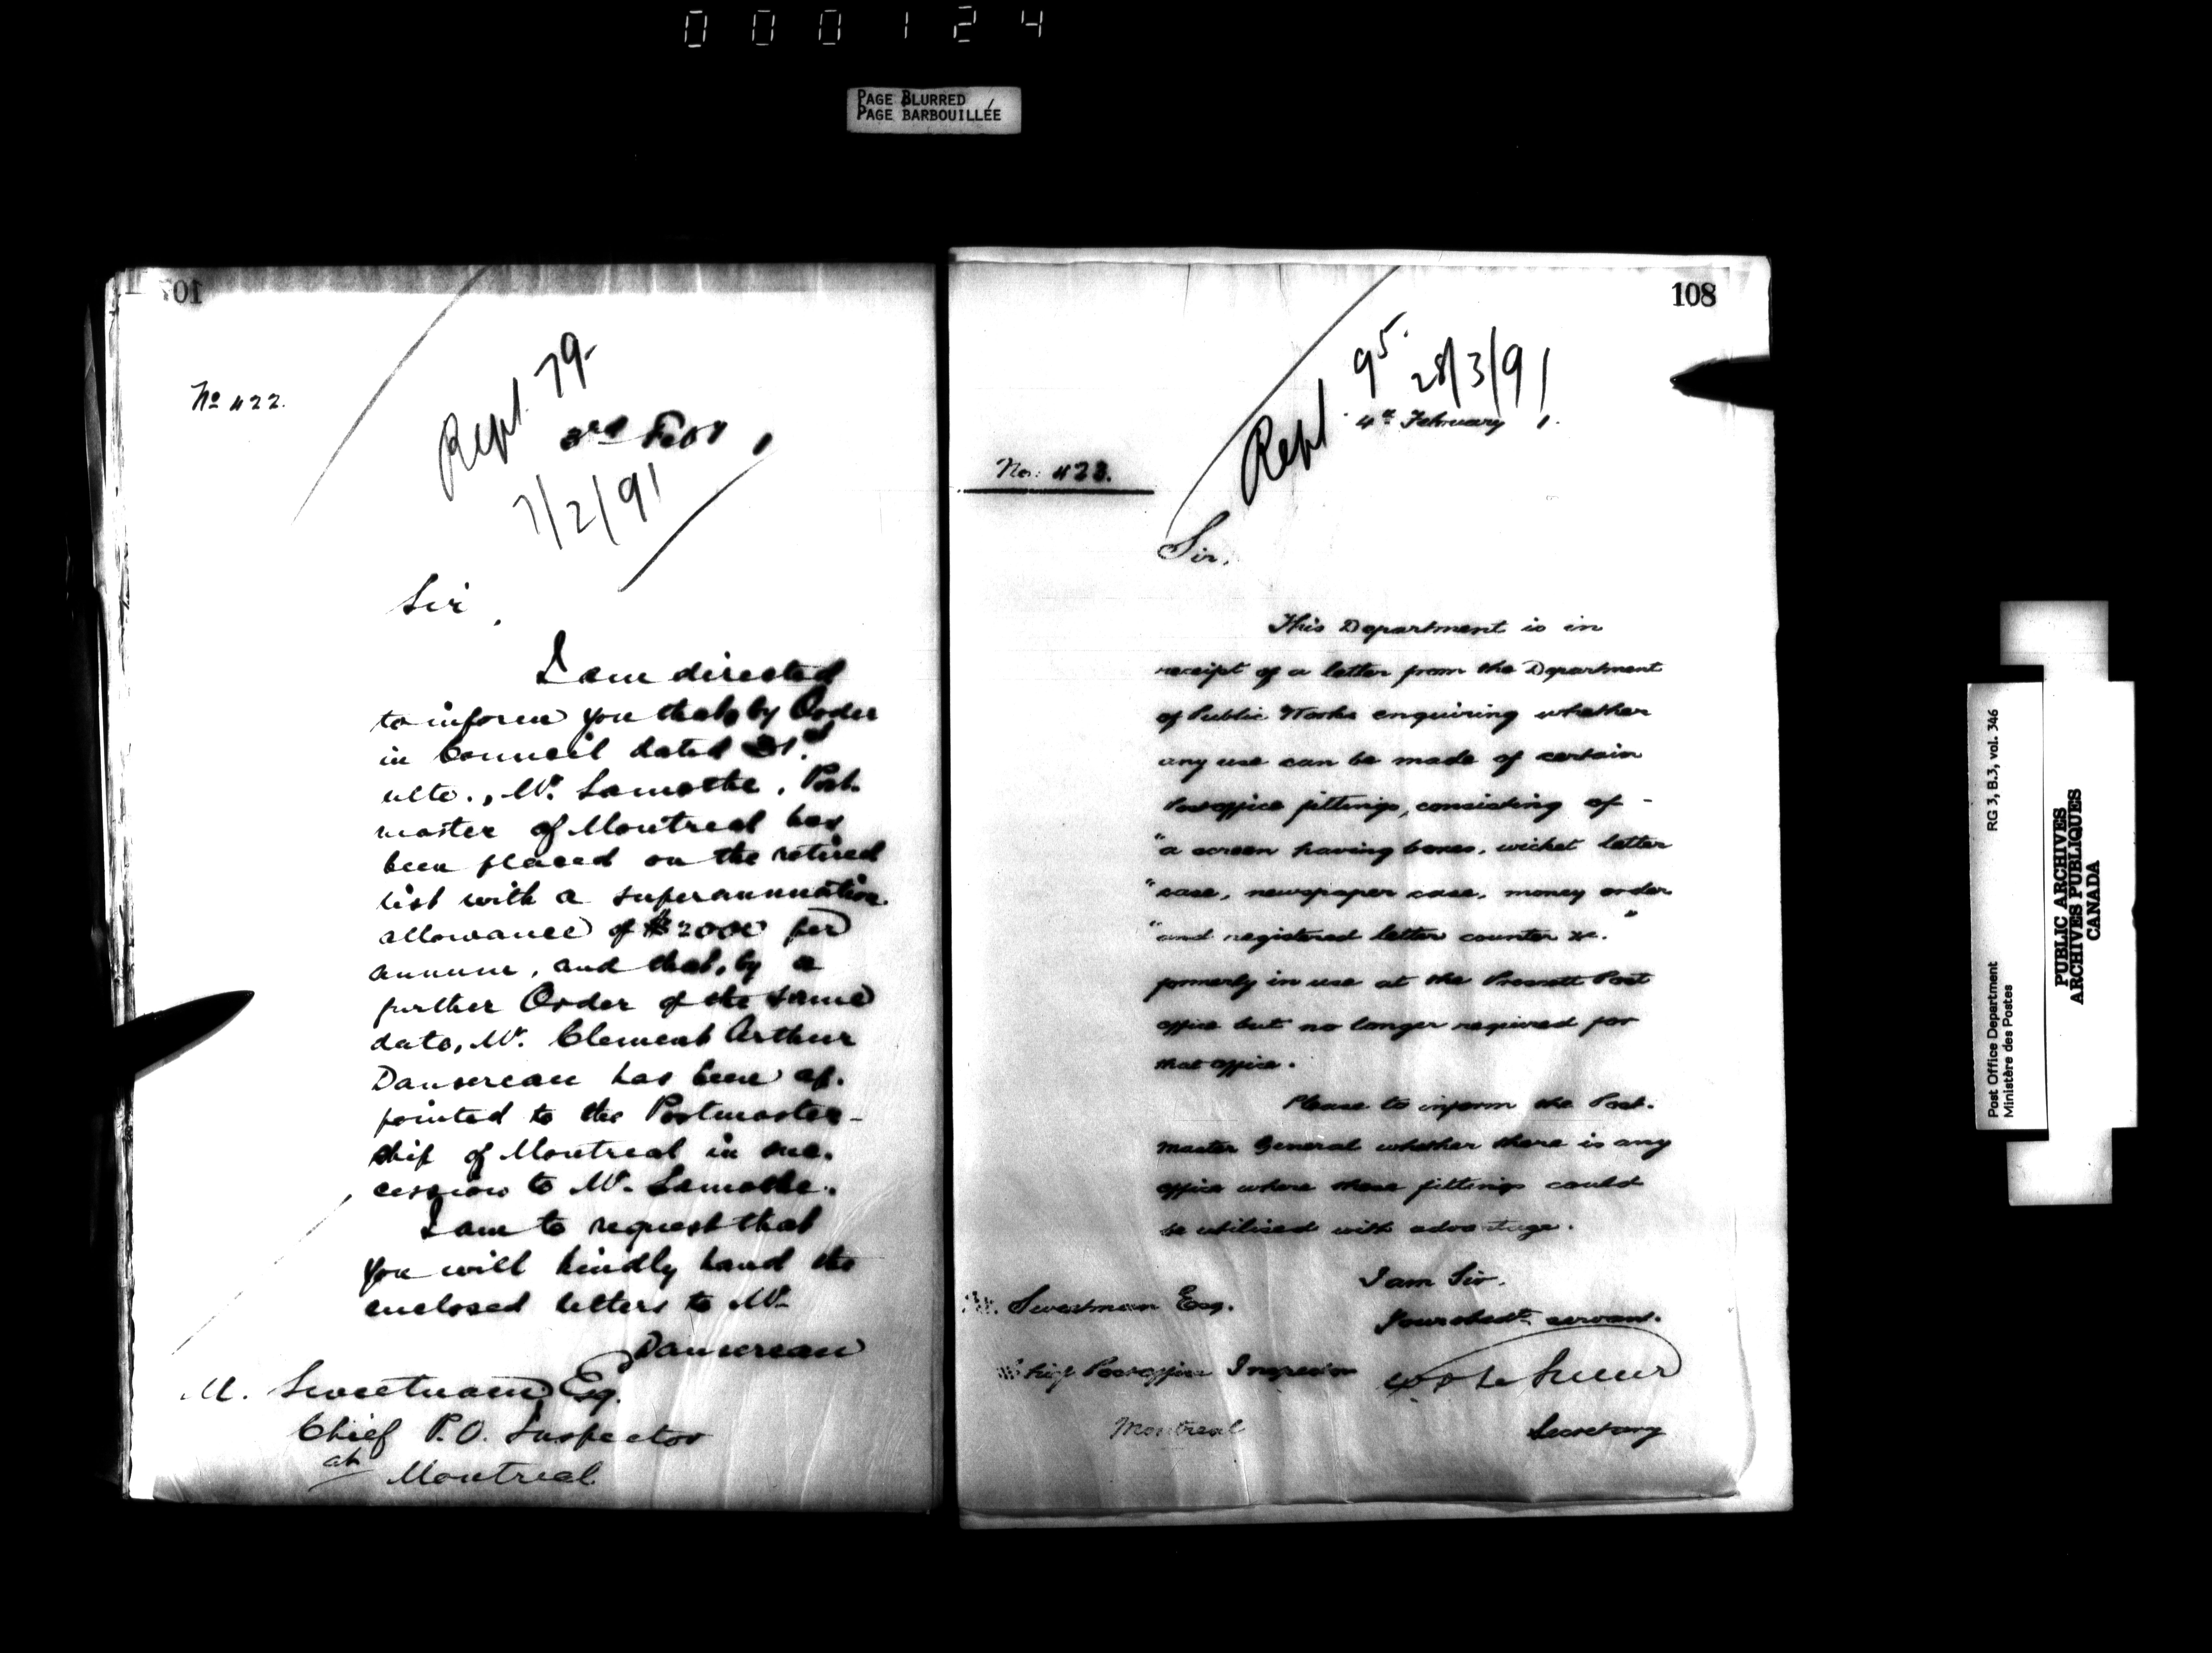 000124
PAGE BLURRED
PAGE BARBOUILLÉE
No 422.
Rept. 79.
3rd Feby 1
7/2/91
Sir,
I am directed
to inform you that, by Order
in Council dated 31st
ulto., Mr. Lamothe, Post-
master of Montreal has
been placed on the retired
list with a superannuation
allowance of $2000 per
annum, and that, by a
further Order of the same
date, Mr. Clement Arthur
Dansereau has been ap-
pointed to the Postmaster-
ship of Montreal in suc-
cession to Mr. Lamothe.
I am to request that
you will kindly hand the
enclosed letters to Mr.
Dansereau
M. Sweetnam Esq.
Chief P.O. Inspector
at Montreal
108
Rept 95.
28/3/91
4th February 1.
No: 423.
Sir,
This Department is in
receipt of a letter from the Department
of Public Works enquiring whether
any use can be made of certain
Post office fittings, consisting of -
"a screen having boxes, wicket letter
"case, newspaper case, money order
"and registered letter counter &c."
formerly in use at the Prescott Post
office but no longer required for
that office.
Please to inform the Post-
master General whether there is any
office where these fittings could
be utilised with advantage.
I am Sir.
Your obedt servant.
Sweetnam Esq.
Chief Post office Inspector
Montreal
W D LeSueur
Secretary
Post Office Department
Ministère des Postes
RG 3, B.3, vol. 346
PUBLIC ARCHIVES
ARCHIVES PUBLIQUES
CANADA